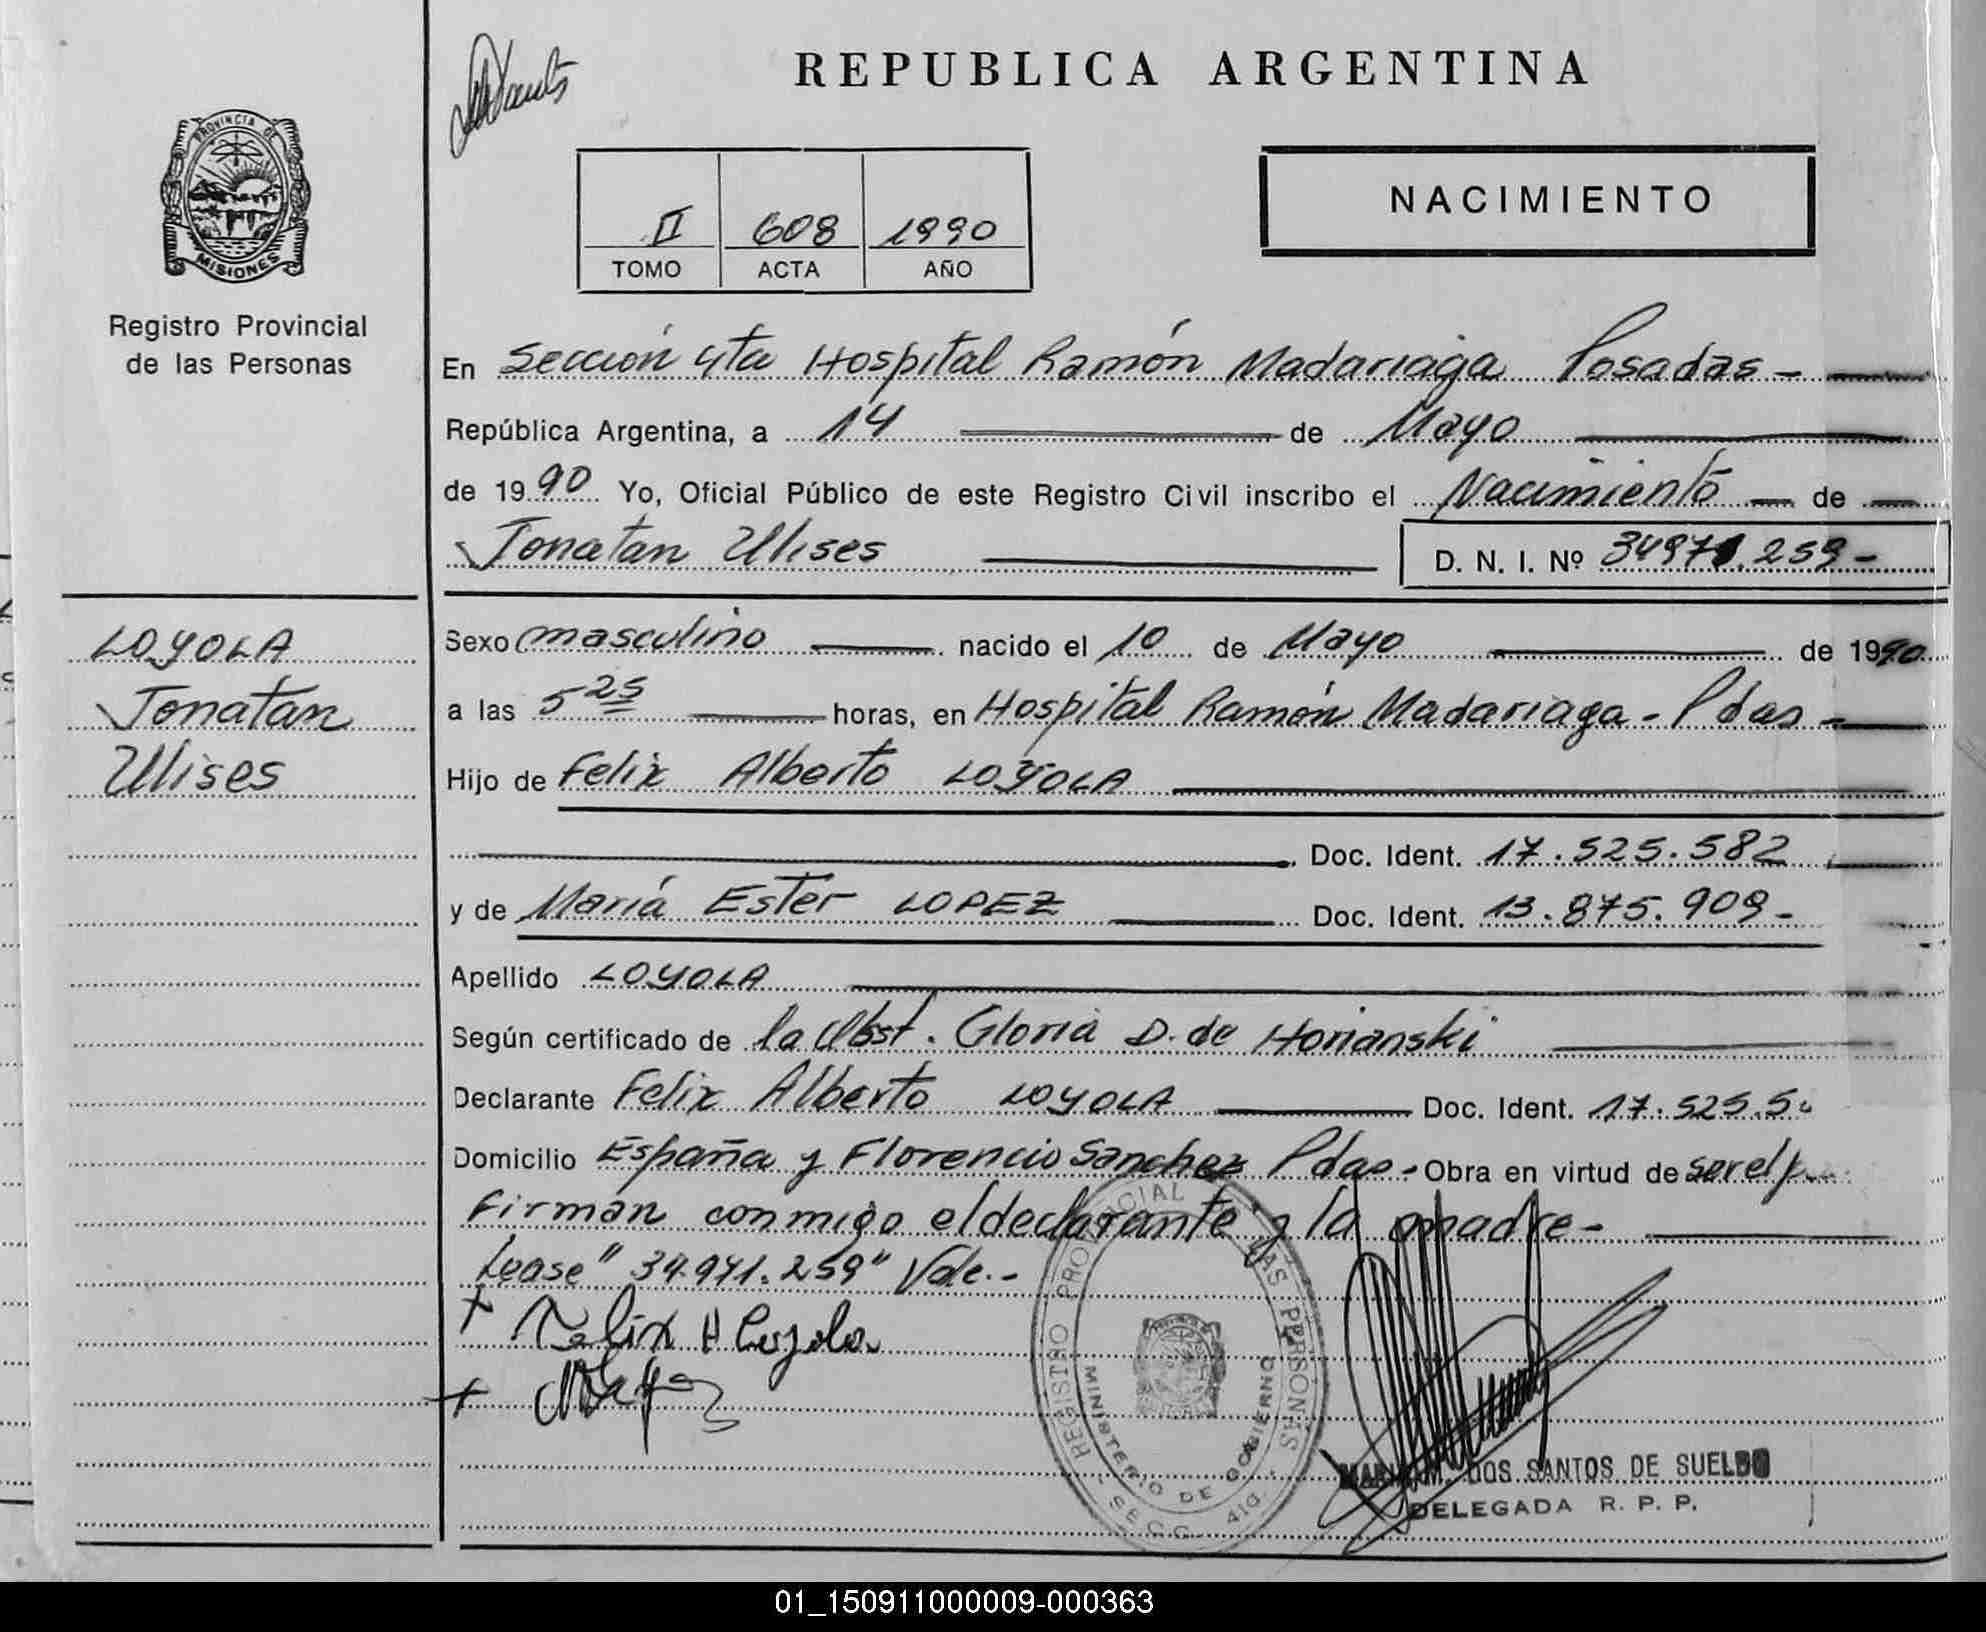 REPUBLICA ARGENTINA
PROVINCIA DE
MISIONES
Registro Provincial
de las Personas
II 608 1990
TOMO ACTA AÑO
NACIMIENTO
En Sección 4ta Hospital Ramón Madariaga Posadas -
República Argentina, a 14 de Mayo
de 1990 Yo, Oficial Público de este Registro Civil inscribo el Nacimiento de
Jonatan Ulises D. N. I. Nº 34971.259-
LOYOLA
Jonatan
Ulises
Sexo masculino nacido el 10 de Mayo de 1990
a las 5 25 horas, en Hospital Ramón Madariaga - Pdas -
Hijo de Felix Alberto LOYOLA
Doc. Ident. 17.525.582
y de María Ester LOPEZ Doc. Ident. 13.875.909-
Apellido LOYOLA
Según certificado de la Obst. Gloria D. de Horianski
Declarante Felix Alberto LOYOLA Doc. Ident. 17.525.5
Domicilio España y Florencio Sanchez Pdas. Obra en virtud de ser el p
Firman conmigo el declarante y la madre-
Lease" 34.971.259" Vale.-
Felix A Loyola
REGISTRO PROVINCIAL LAS PERSONAS
MINISTERIO DE GOBIERNO
SECC. 4
M. DOS SANTOS DE SUELDO
DELEGADA R. P. P.
01_150911000009-000363